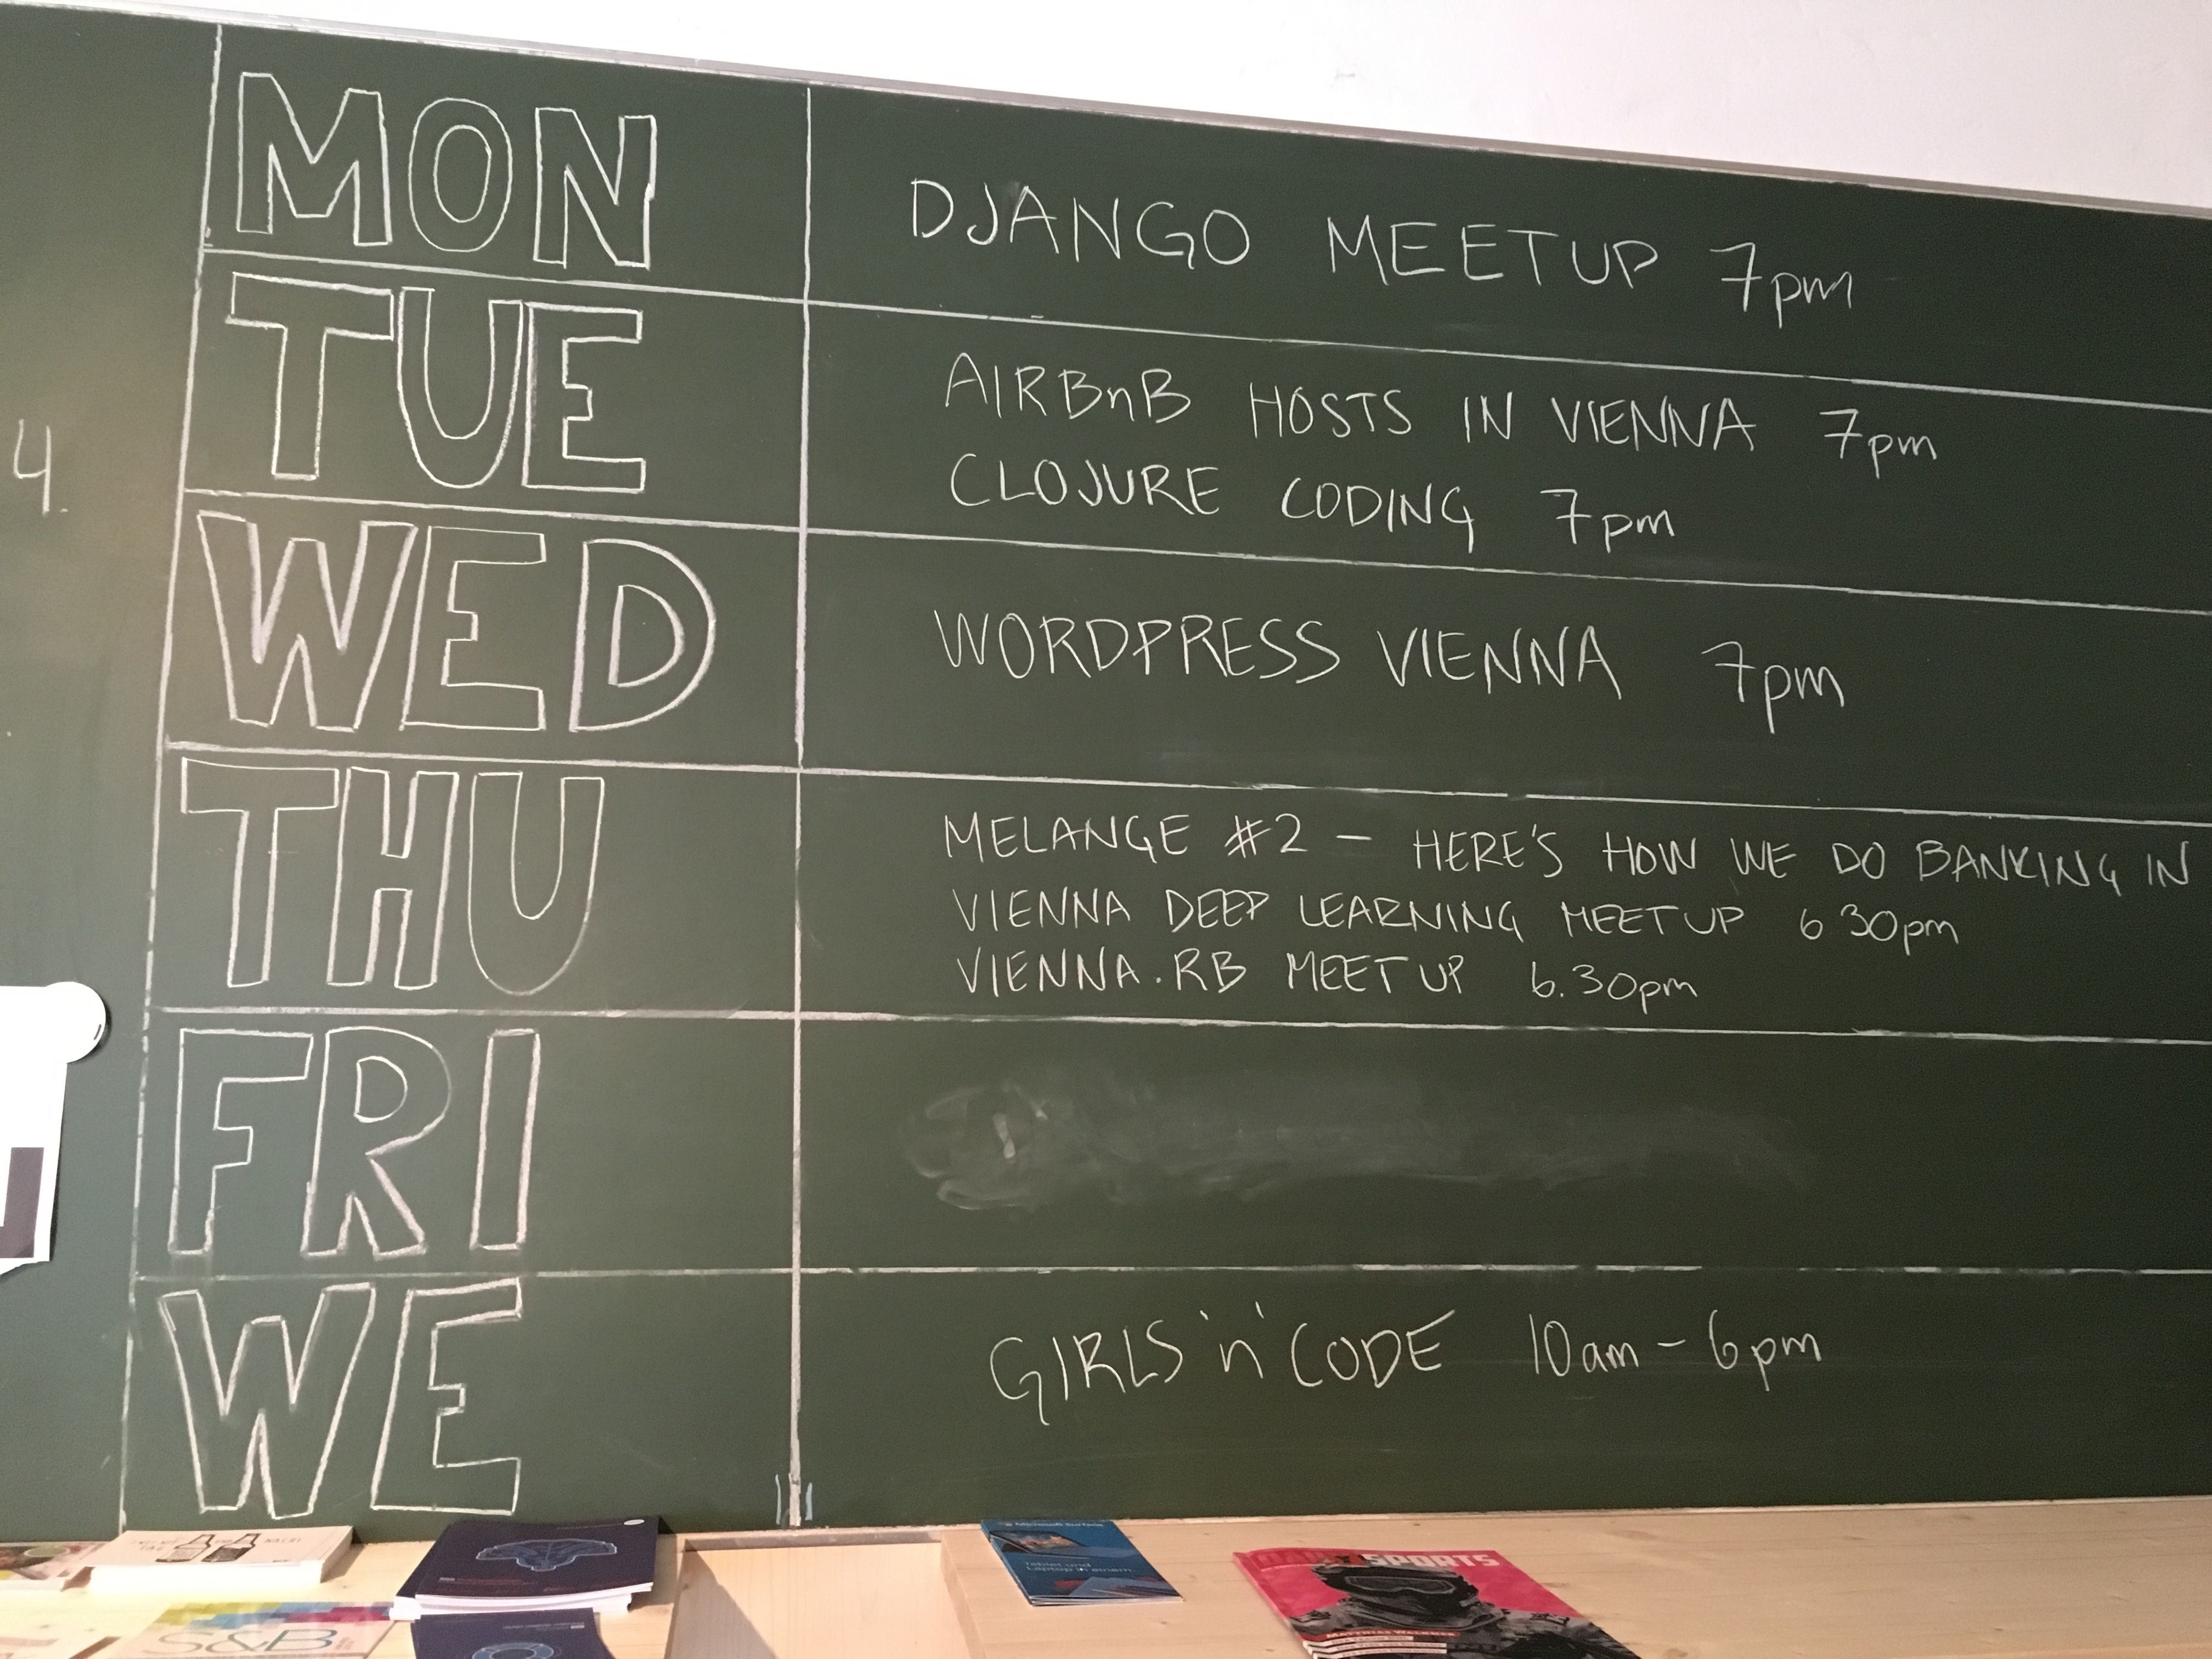 MON
DJANGO MEETUP 7pm
TUE
AIRBnB HOSTS IN VIENNA 7pm
CLOJURE CODING 7pm
4.
WED
WORDPRESS VIENNA 7pm
THU
MELANGE #2 – HERE'S HOW WE DO BANKING IN
VIENNA DEEP LEARNING MEETUP 6 30pm
VIENNA.RB MEETUP 6.30pm
FRI
WE
GIRLS 'n' CODE 10am – 6pm
Microsoft Surface
Tablet und
Laptop in einem
SPORTS
S&B